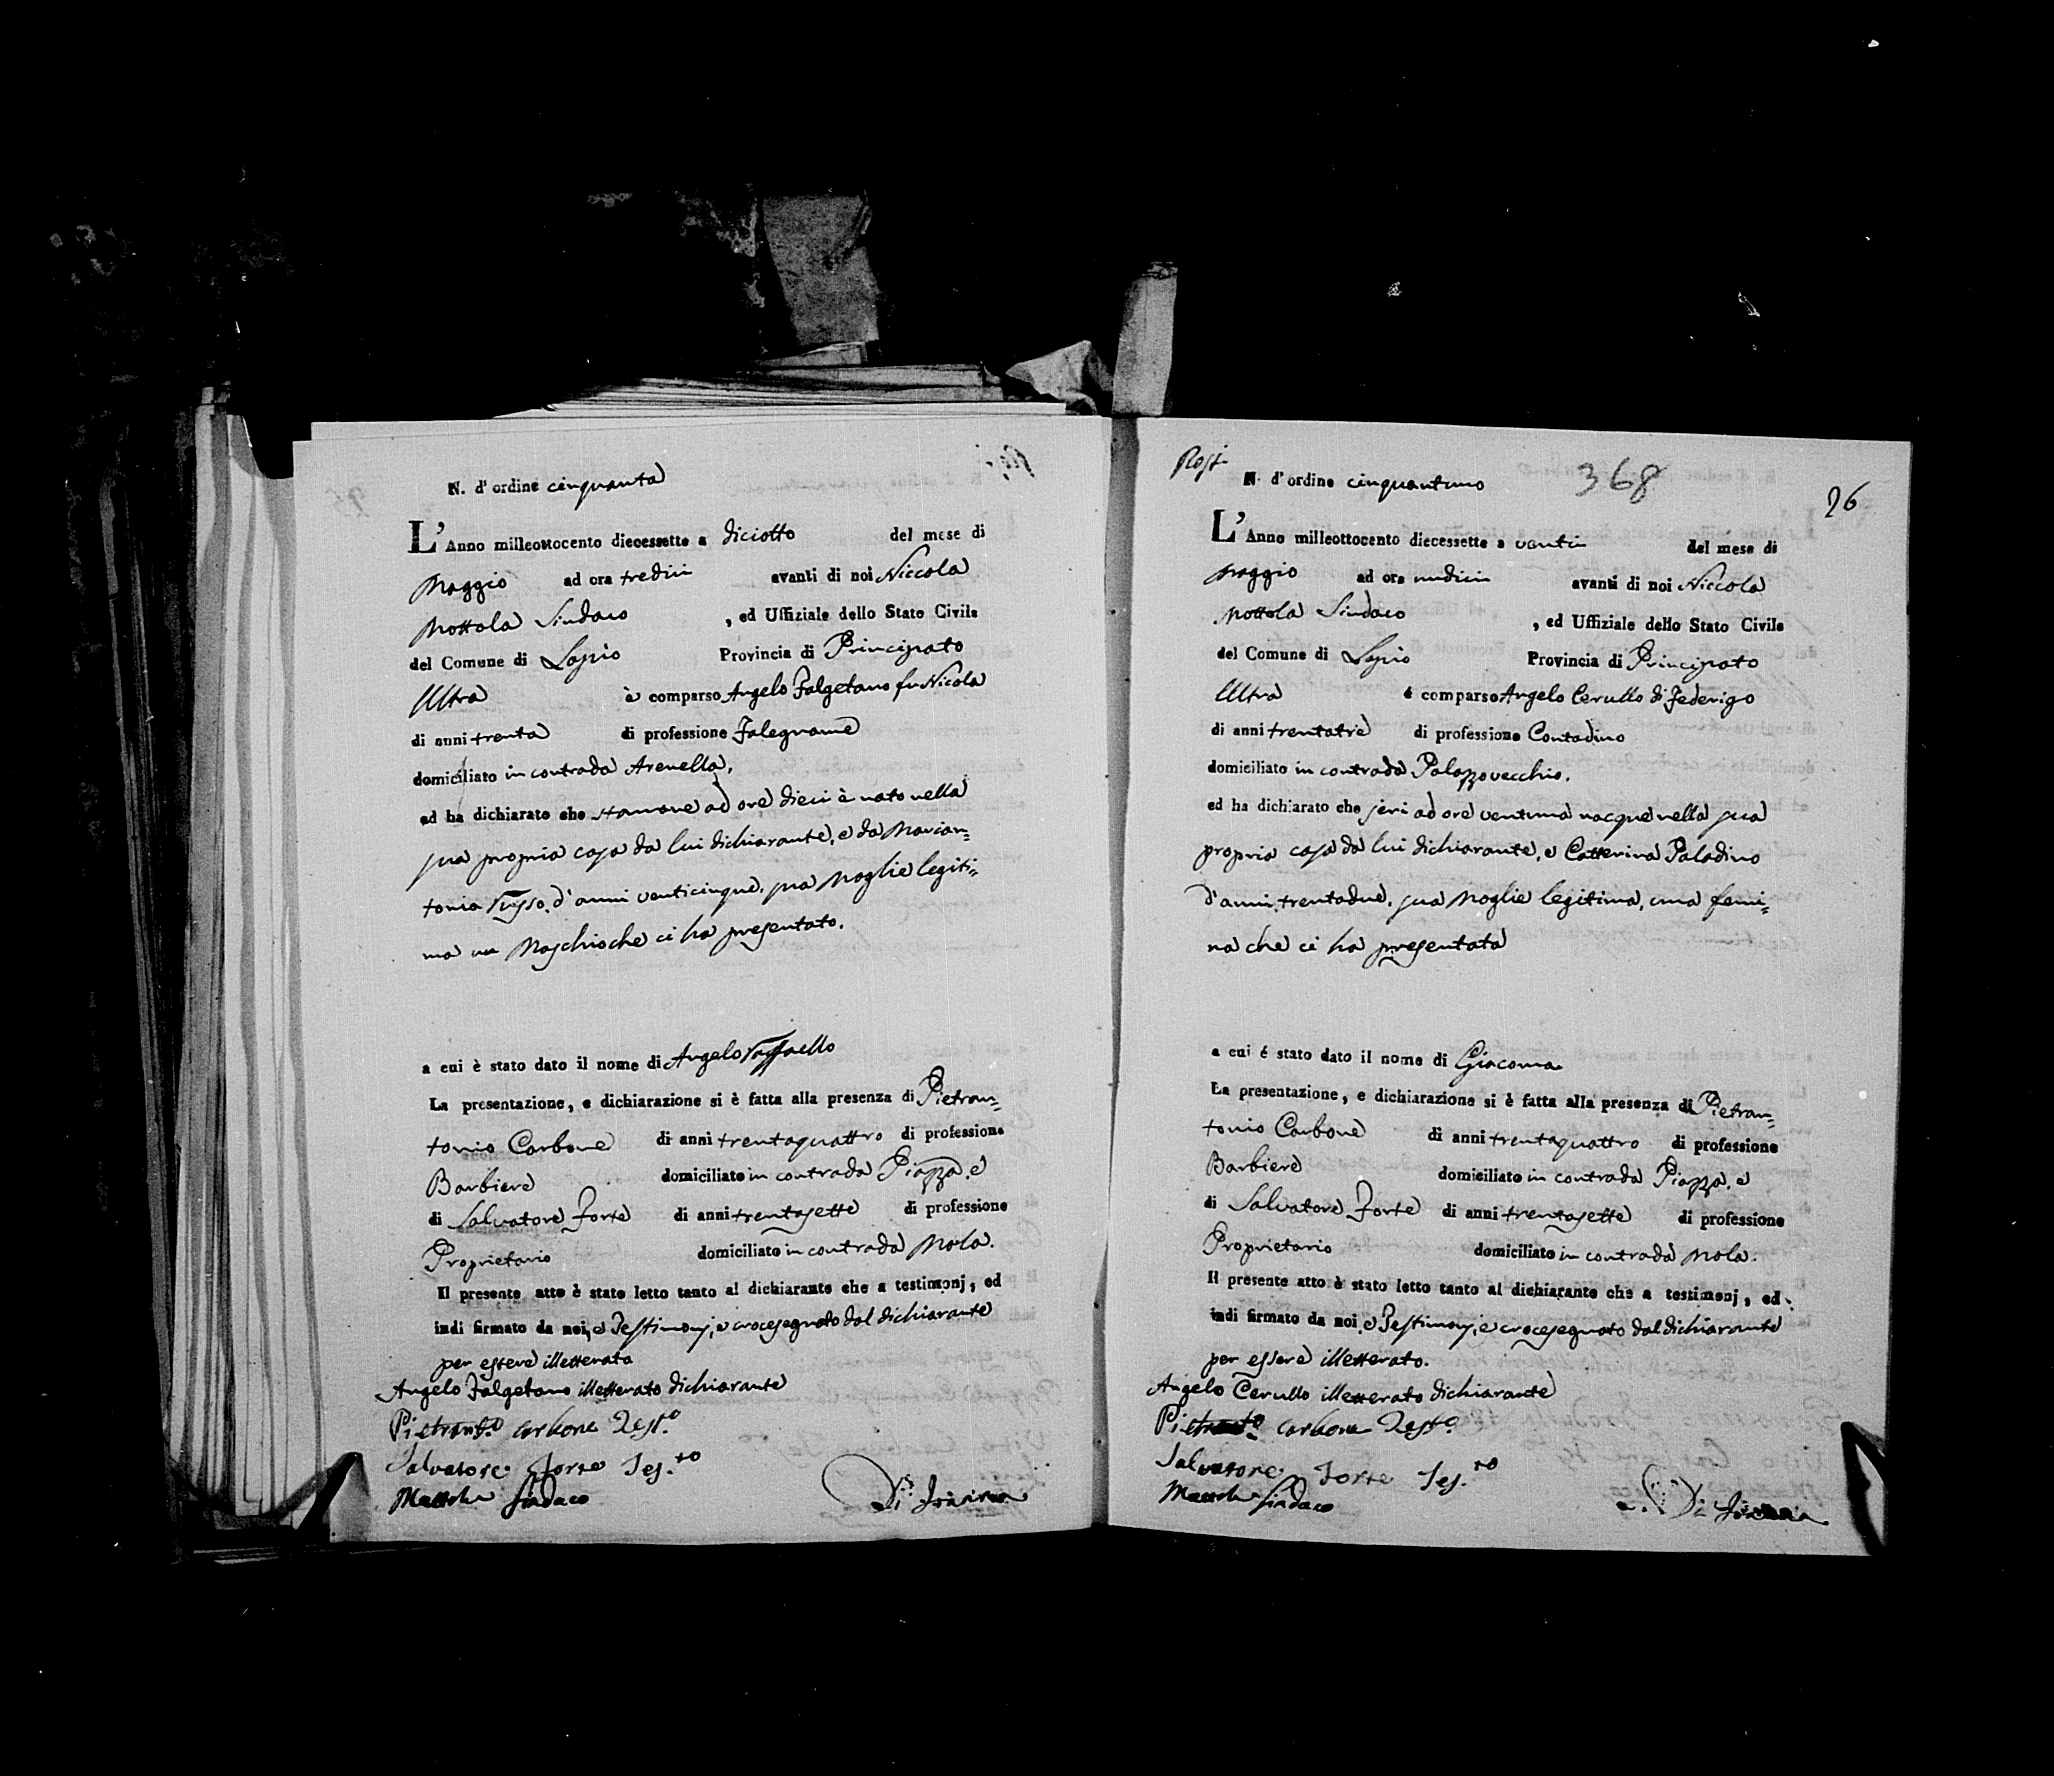 N. d' ordine cinquanta
L'Anno milleottocento diecessette a diciotto del mese di
Maggio ad ora tredici avanti di noi Niccola
Mottola Sindaco , ed Uffiziale dello Stato Civile
del Comune di Lapio Provincia di Principato
Ultra è comparso Angelo Falgetano fu Nicola
di anni trenta di professione Falegname
domiciliato in contrada Arenella,
ed ha dichiarato che stamane ad ore dieci è nato nella
sua propria casa da lui dichiarante, e da Marian=
tonia Russo, d'anni venticinque, sua Moglie legiti=
ma un Maschio che ci ha presentato.
a cui è stato dato il nome di Angelo Raffaello
La presentazione, e dichiarazione si è fatta alla presenza di Pietran=
tonio Carbone di anni trentaquattro di professione
Barbiere domiciliato in contrada Piazza, e
di Salvatore Forte di anni trentasette di professione
Proprietario domiciliato in contrada Mola.
Il presente atto è stato letto tanto al dichiarante che a testimonj, ed
indi firmato da noi, e Testimonj, e crocesegnato dal dichiarante
per essere illetterato
Angelo Falgetano illetterato dichiarante
Pietrant.o Carbone Test.o
Salvatore Forte Tes.to
Mottola Sindaco
Rosi
N. d' ordine cinquantuno
368
26
L'Anno milleottocento diecessette a venti del mese di
Maggio ad ora undici avanti di noi Niccola
Mottola Sindaco , ed Uffiziale dello Stato Civile
del Comune di Lapio Provincia di Principato
Ultra è comparso Angelo Cerullo di Federigo
di anni trentatrè di professione Contadino
domiciliato in contrada Palazzovecchio.
ed ha dichiarato che jeri ad ore ventuna nacque nella sua
propria casa da lui dichiarante, e Catterina Paladino
d'anni trentadue, sua Moglie legitima, una femi=
na che ci ha presentata
a cui é stato dato il nome di Giacoma.
La presentazione, e dichiarazione si è fatta alla presenza di Pietran=
tonio Carbone di anni trentaquattro di professione
Barbiere domiciliato in contrada Piazza, e
di Salvatore Forte di anni trentasette di professione
Proprietario domiciliato in contrada Mola.
Il presente atto è stato letto tanto al dichiarante che a testimonj, ed
indi firmato da noi, e Testimonj, e crocesegnato dal dichiarante
per essere illetterato.
Angelo Cerullo illetterato dichiarante
Pietrant.o Carbone Test.o
Salvatore Forte Tes.to
Mottola Sindaco